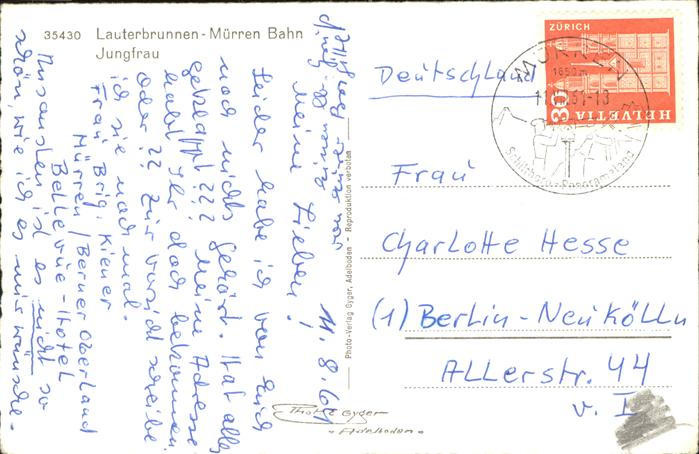 35430 Lauterbrunnen - Mürren Bahn
Jungfrau
11.8.61
Meine Lieben!
Leider habe ich von Euch
noch nichts gehört. Hat alles
geklappt??? Meine Adresse
habt Ihr doch bekommen
oder?? Zur Vorsicht schreibe
ich sie noch mal.
Frau Brig. Kiener
Mürren / Berner Oberland
Bellevue-Hotel
Ansonsten ist es nicht so
schön, wie ich es mir wünsche.
Photo-Verlag Gyger, Adelboden - Reproduktion verboten
Photo Gyger
Adelboden
ZÜRICH
80
HELVETIA
MÜRREN
1650m
Schilthorn-Panorama
Deutschland
Frau
Charlotte Hesse
(1) Berlin-Neukölln
Allerstr. 44
v. I